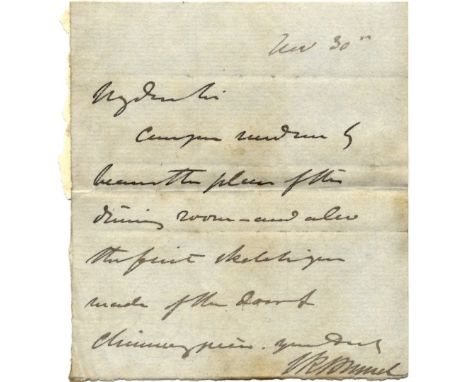 Nov 30th
My dear Sir
Can you send me by
bearer the plan of the
dining room - and also
the first sketch you
made of the door &
chimney piece. yours truly
I K Brunel